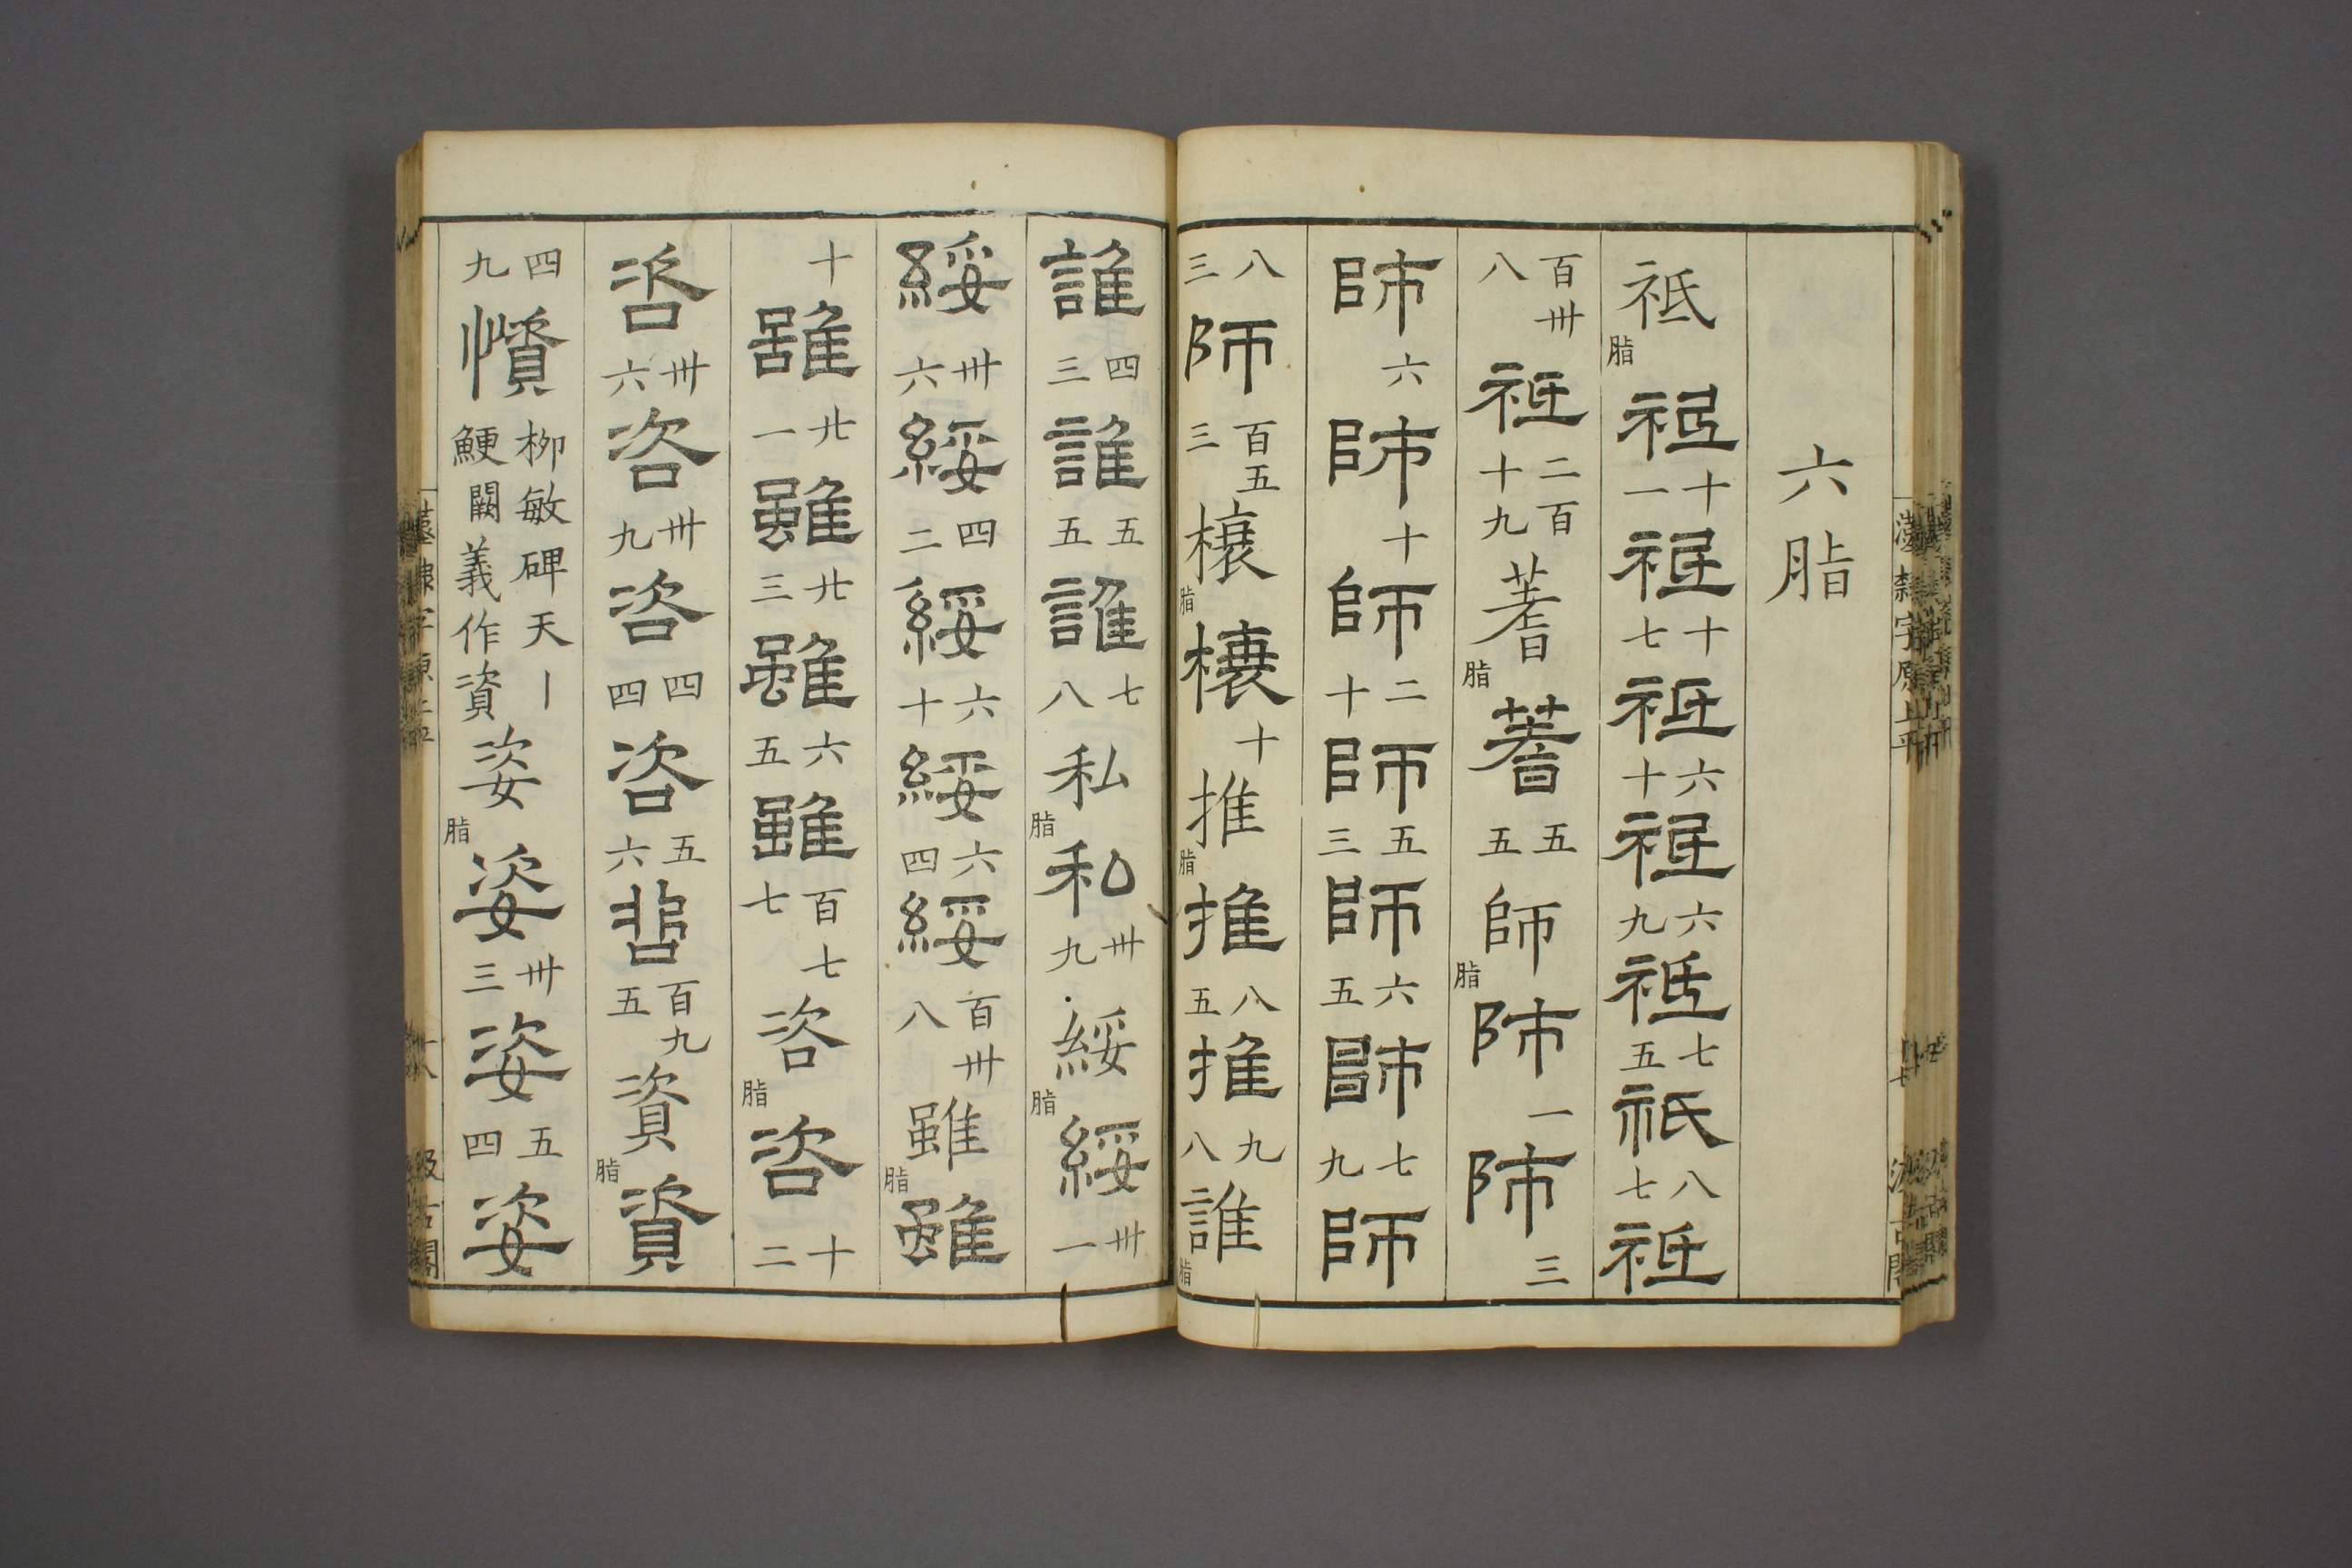 六脂
祗脂祗十一祗十七祗六十祗六九祗七五祇八七祗
百卅八祗二百十九蓍脂蓍五五師脂師一師三
師六師十師二十師五三師六五師七九師
八三師百五三榱脂榱十推脂推八五推九八誰脂
誰四三誰五五誰七八私脂私卅九綏脂綏卅一
綏卅六綏四二綏六十綏六四綏百卅八雖脂雖
十雖廿一雖廿三雖六五雖百七七咨脂咨十二
咨卅六咨卅九咨四四咨五六咨百九五資脂資
四九懫柳敏碑天丨鯁闕義作資姿脂姿卅三姿五四姿
漢隸字原上平
汲古閣